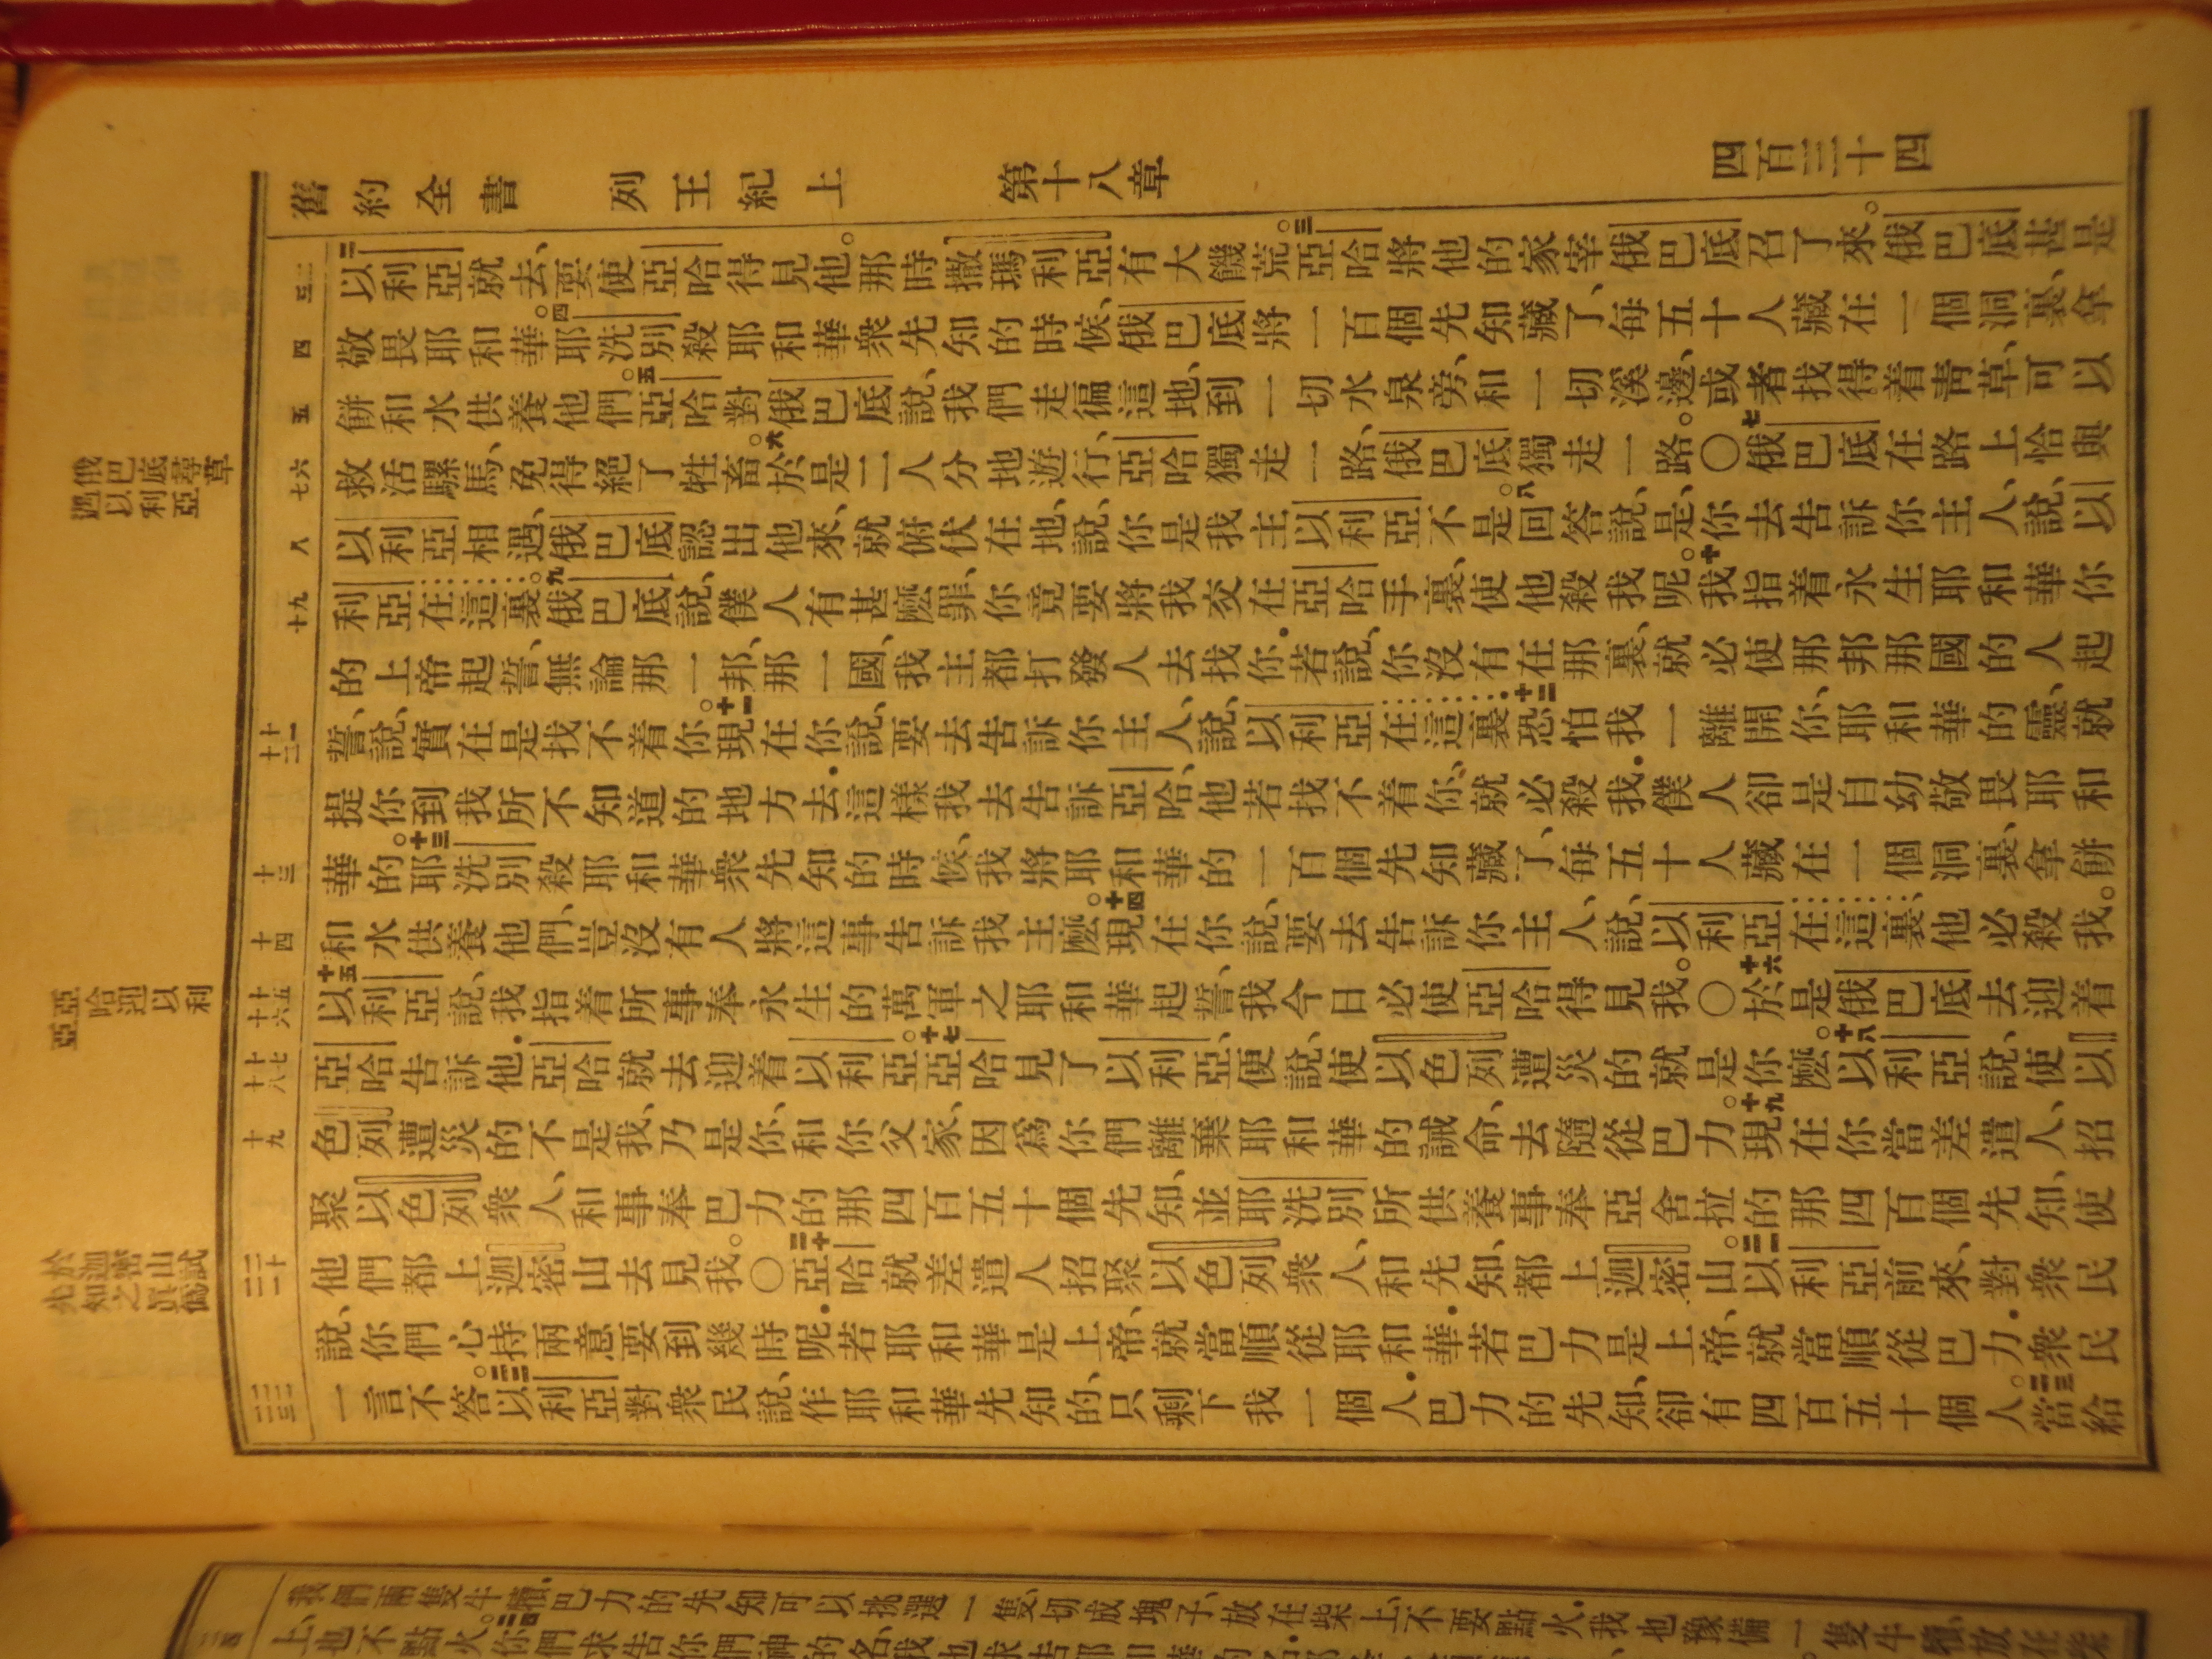 舊約全書 列王紀上 第十八章 四百三十四
二三
四
五
六七
八
九十
十一十二
十三
十四
十五十六
十七十八
十九
二十二一
二二二三
俄巴底尋草
遇以利亞
亞哈迎以利
亞
於迦密山試
先知之眞僞
二以利亞就去、要使亞哈得見他。那時撒瑪利亞有大饑荒。三亞哈將他的家宰俄巴底召了來。俄巴底甚是
敬畏耶和華。四耶洗別殺耶和華衆先知的時候、俄巴底將一百個先知藏了、每五十人藏在一個洞裏、拿
餅和水供養他們。五亞哈對俄巴底說、我們走徧這地、到一切水泉旁、和一切溪邊、或者找得着靑草、可以
救活騾馬、免得絕了牲畜。六於是二人分地遊行、亞哈獨走一路、俄巴底獨走一路。〇七俄巴底在路上恰與
以利亞相遇、俄巴底認出他來、就俯伏在地、說、你是我主以利亞不是。八回答說、是、你去告訴你主人、說、以
利亞在這裏。九俄巴底說、僕人有甚麽罪、你竟要將我交在亞哈手裏、使他殺我呢。十我指着永生耶和華你
的上帝起誓、無論那一邦、那一國、我主都打發人去找你．若說、你沒有在那裏、就必使那邦那國的人起
誓、說、實在是找不着你。十一現在你說、要去告訴你主人、說、以利亞在這裏．十二恐怕我一離開你、耶和華的靈、就
提你到我所不知道的地方去．這樣我去告訴亞哈、他若找不着你、就必殺我．僕人卻是自幼敬畏耶和
華的。十三耶洗別殺耶和華衆先知的時候、我將耶和華的一百個先知藏了、每五十人藏在一個洞裏、拿餅
和水供養他們、豈沒有人將這事告訴我主麽。十四現在你說、要去告訴你主人、說、以利亞在這裏、他必殺我。
十五以利亞說、我指着所事奉永生的萬軍之耶和華起誓、我今日必使亞哈得見我。〇十六於是俄巴底去迎着
亞哈告訴他．亞哈就去迎着以利亞。十七亞哈見了以利亞、便說、使以色列遭災的就是你麽。十八以利亞說、使以
色列遭災的不是我、乃是你、和你父家、因爲你們離棄耶和華的誡命、去隨從巴力。十九現在你當差遣人、招
聚以色列衆人、和事奉巴力的那四百五十個先知、並耶洗別所供養事奉亞舍拉的那四百個先知、使
他們都上迦密山去見我。〇二十亞哈就差遣人招聚以色列衆人、和先知、都上迦密山。二一以利亞前來、對衆民
說、你們心持兩意要到幾時呢．若耶和華是上帝、就當順從耶和華．若巴力是上帝、就當順從巴力．衆民
一言不答。二二以利亞對衆民說、作耶和華先知的、只剩下我一個人．巴力的先知、卻有四百五十個人。二三當給
我們兩隻牛犢、巴力的先知可以挑選一隻、切成塊子、放在柴上、不要點火．我也豫備一隻牛犢放在柴
上、也不點火。二四你們求告你們神的名、我也求告耶和華的